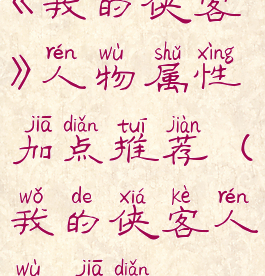 《我的侠客
rén wù shǔ xìng
》人物属性
jiā diǎn tuī jiàn
加点推荐（
wǒ de xiá kè rén
我的侠客人
wù jiā diǎn